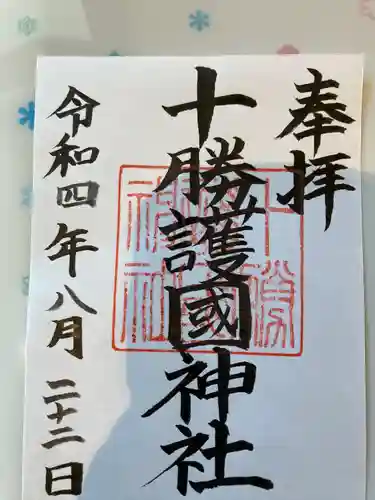 奉拝
十勝護國神社
十勝護國神社
令和四年八月二十二日